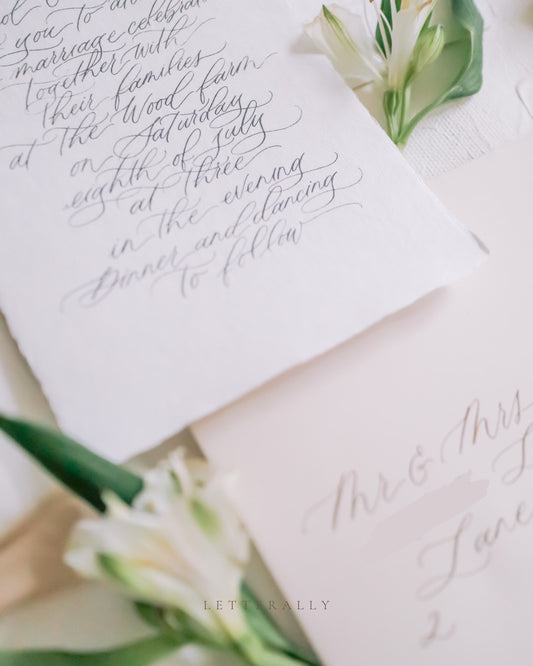 you to
marriage celebra
together with
their families
at the Wood farm
on Saturday
eighth of July
at three
in the evening
Dinner and dancing
to follow
Mr & Mrs
L
Lane
2
LETTERALLY